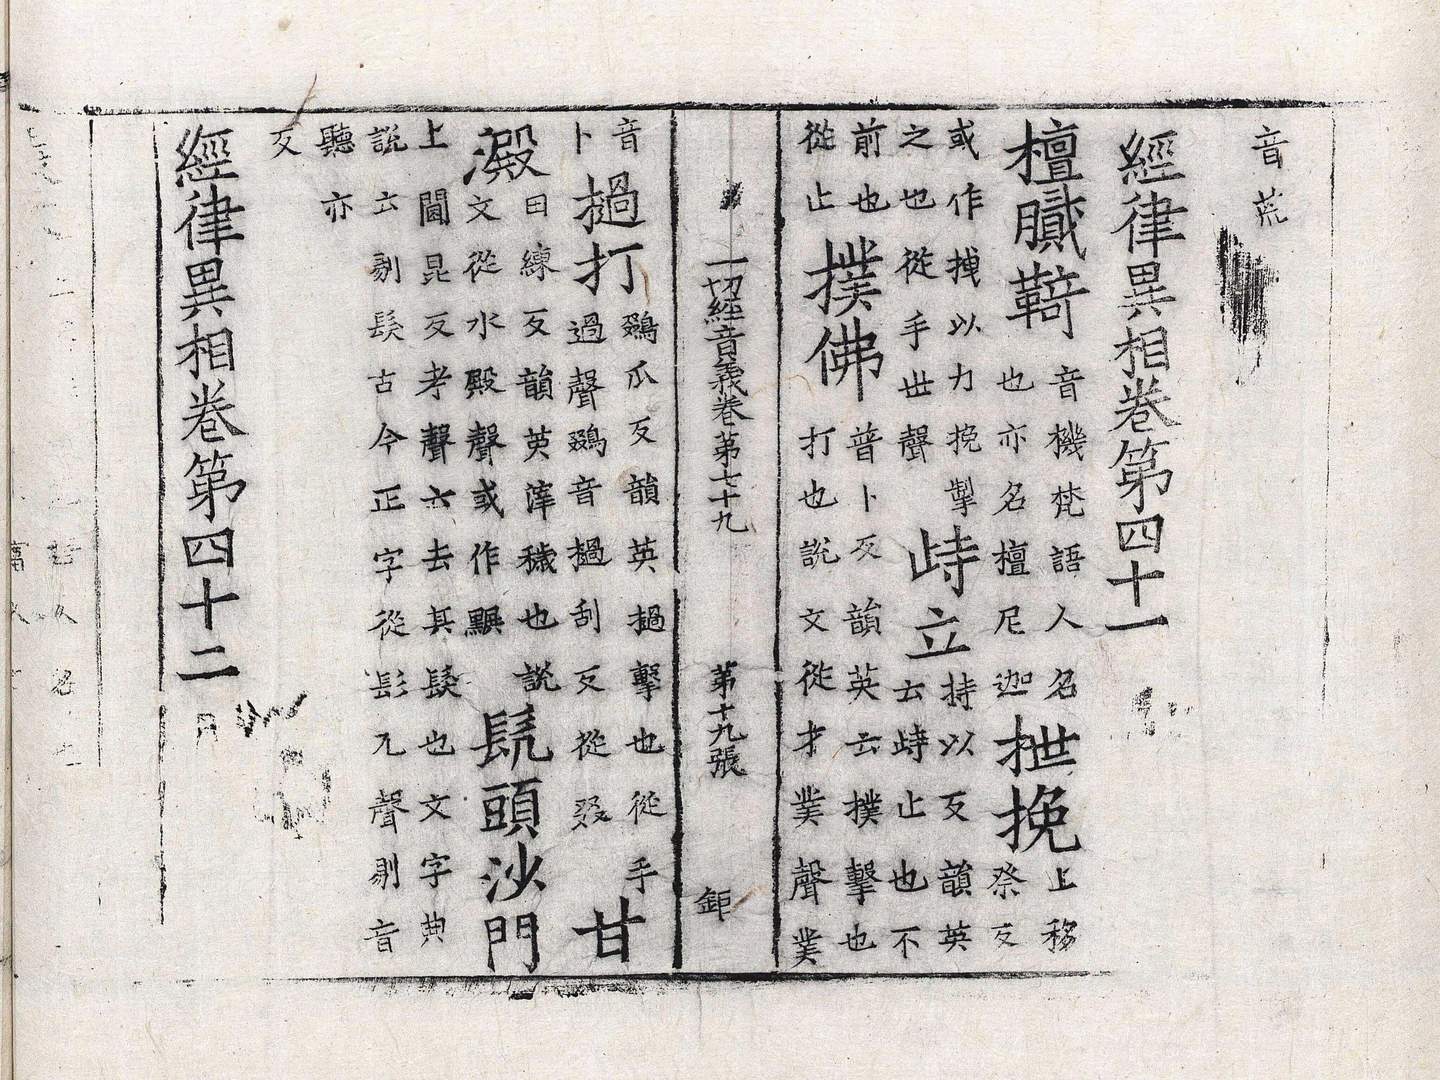 音荒
經律異相卷第四十一
檀膩䩭音機梵語人名也亦名檀尼迦抴挽上移祭反
或作拽以力挽掣之也從手世聲歭立持以反韻英云歭止也不
前也從止撲佛普卜反韻英云撲擊也打也說文從才菐聲菐
一切經音義卷第七十九 第十九張 鉅
音卜撾打鵽瓜反韻英撾擊也從手過聲鵽音撾刮反從叕甘
澱田練反韻英滓穢也說文從水殿聲或作䵘髡頭沙門
上閫昆反考聲云去其髮也文字典說云剔髮古今正字從髟兀聲剔音
聽亦反
經律異相卷第四十二